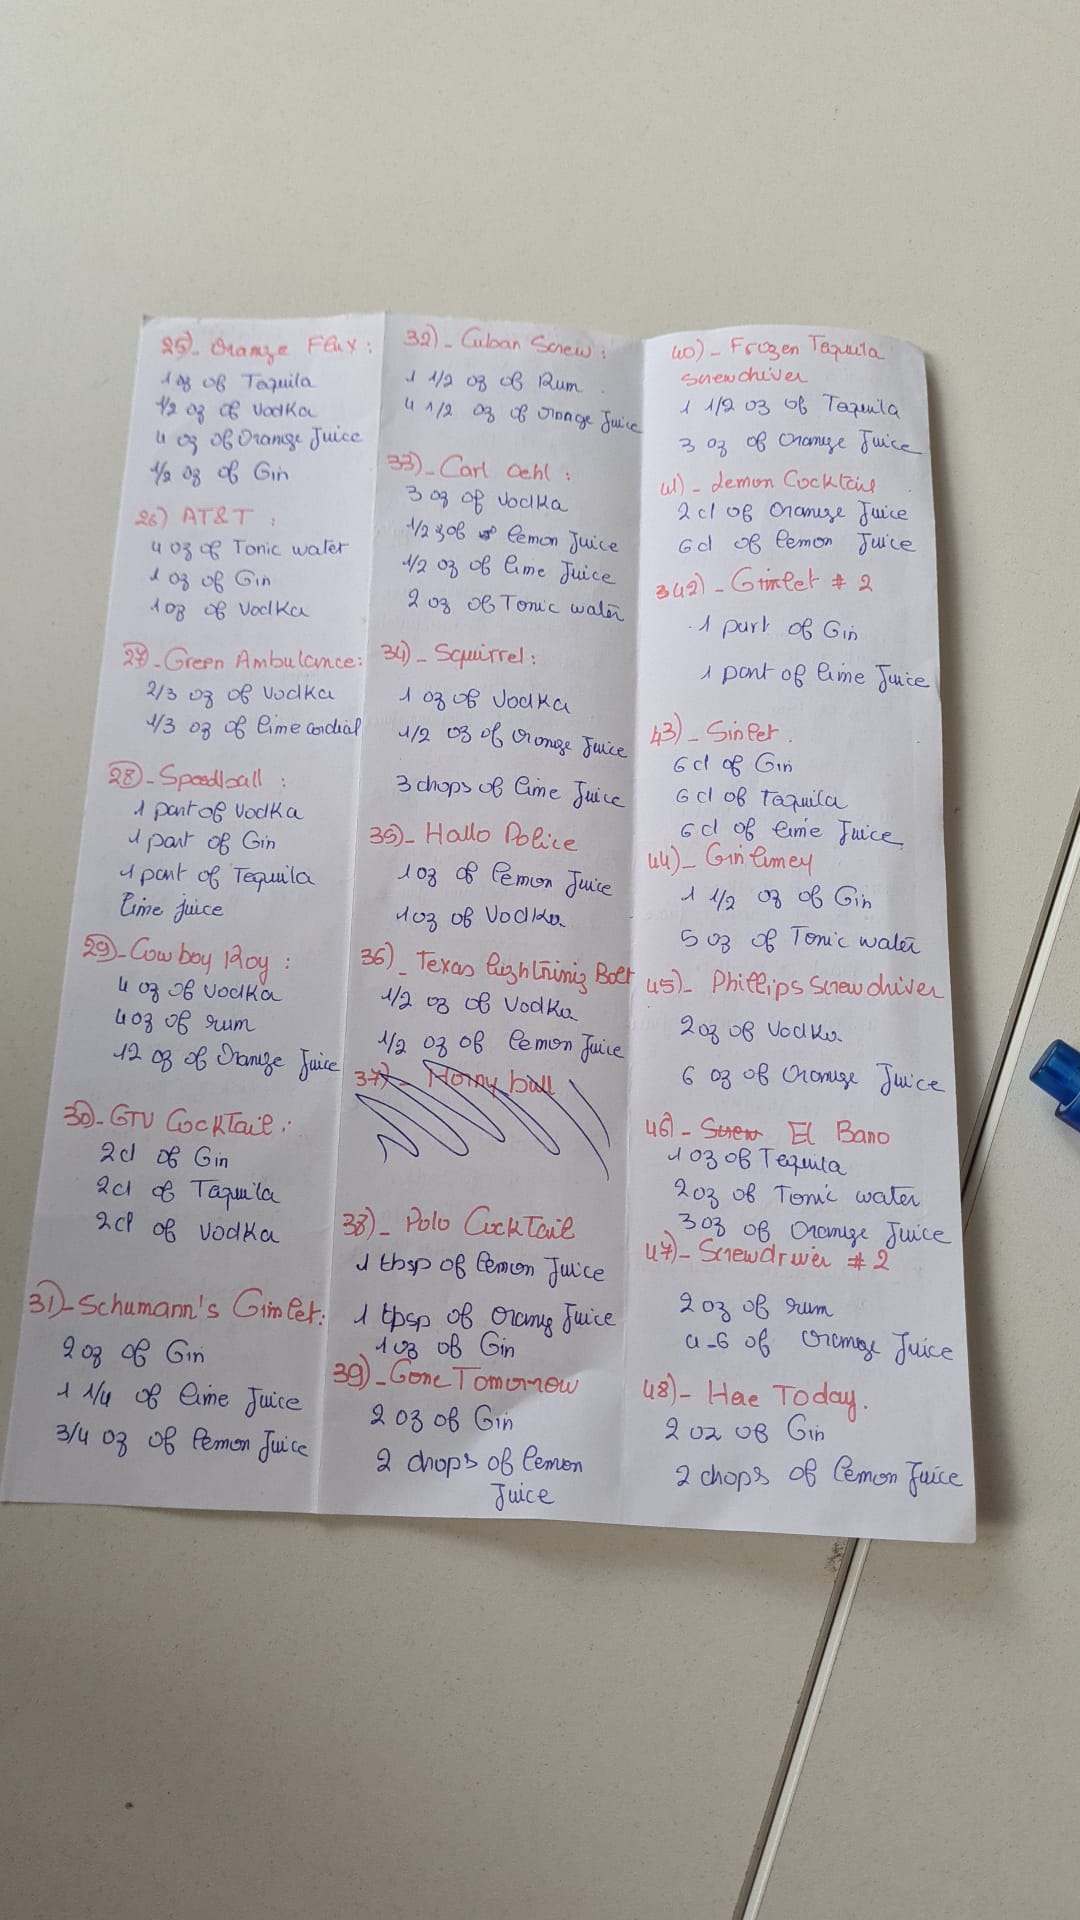 25)- Orange Flux :
1 oz of Tequila
1/2 oz of Vodka
4 oz of Orange Juice
1/2 oz of Gin
26) AT&T :
4 oz of Tonic water
1 oz of Gin
1 oz of Vodka
27)- Green Ambulance:
2/3 oz of Vodka
1/3 oz of lime cordial
28)- Speedball :
1 part of Vodka
1 part of Gin
1 part of Tequila
lime juice
29)- Cowboy Roy :
4 oz of Vodka
4 oz of rum
12 oz of Orange Juice
30)- GTV CockTail :
2cl of Gin
2cl of Tequila
2cl of Vodka
31)- Schumann's Gimlet:
2 oz of Gin
1 1/4 of lime Juice
3/4 oz of lemon Juice
32)- Cuban Screw :
1 1/2 oz of Rum
4 1/2 oz of Orange Juice
33)- Carl Oehl :
3 oz of Vodka
1/2 of lemon Juice
1/2 oz of lime Juice
2 oz of Tonic water
34)- Squirrel :
1 oz of Vodka
1/2 oz of Orange Juice
3 drops of lime Juice
35)- Hallo Police
1 oz of lemon Juice
1 oz of Vodka
36)- Texas lightning Bolt
1/2 oz of Vodka
1/2 oz of lemon Juice
37)- Horny bull
38)- Polo CockTail
1 tbsp of lemon Juice
1 tbsp of Orange Juice
1 oz of Gin
39)- Gone Tomorrow
2 oz of Gin
2 drops of lemon
Juice
40)- Frozen Tequila
screwdriver
1 1/2 oz of Tequila
3 oz of Orange Juice
41)- Lemon Cocktail
2cl of Orange Juice
6cl of lemon Juice
342)- Gimlet # 2
1 part of Gin
1 part of lime Juice
43)- Sinlet.
6cl of Gin
6cl of Tequila
6cl of lime Juice
44)- Gin limey
1 1/2 oz of Gin
5 oz of Tonic water
45)- Phillips Screwdriver
2 oz of Vodka
6 oz of Orange Juice
46)- Screw El Bano
1 oz of Tequila
2 oz of Tonic water
3 oz of Orange Juice
47)- Screwdriver # 2
2 oz of rum
4-6 of Orange Juice
48)- Hae Today.
2 oz of Gin
2 drops of lemon Juice